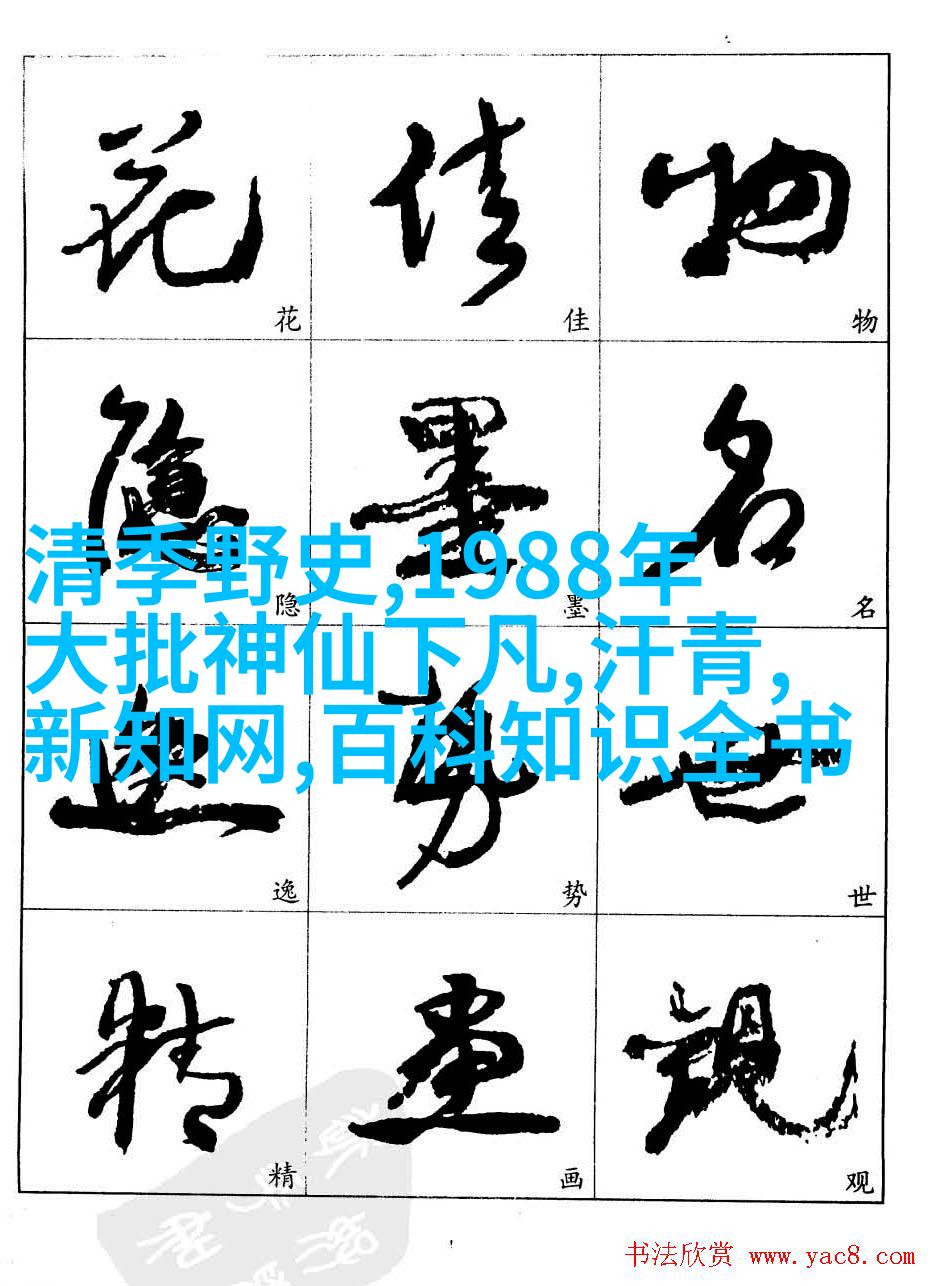 花 佳 物
花 佳 物
隐 墨 名
隐 墨 名
清季野史,1988年
大批神仙下凡,汗青,
新知网,百科知识全书
逸 势 世
逸 势 世
精 画 观
精 画 观
书法欣赏 www.yac8.com